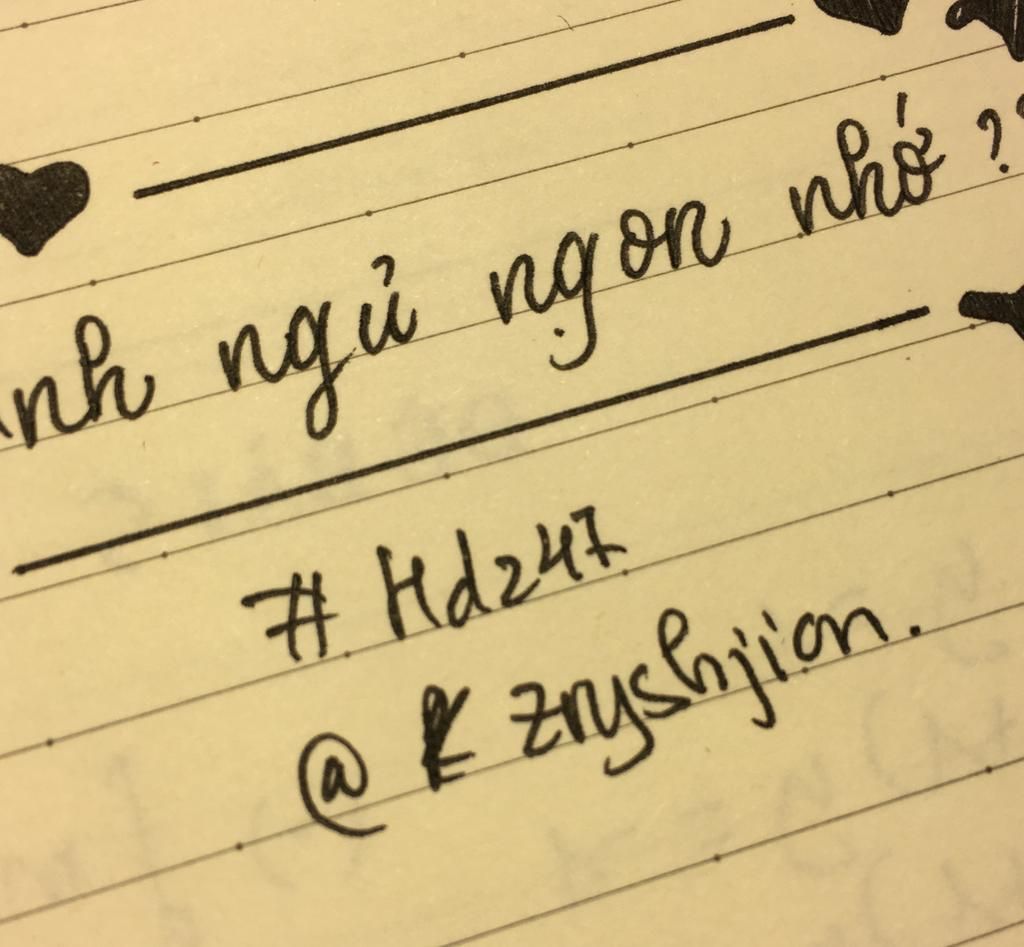 Anh ngủ ngon nhớ ?
# Hdz47
@ K zryshjion.